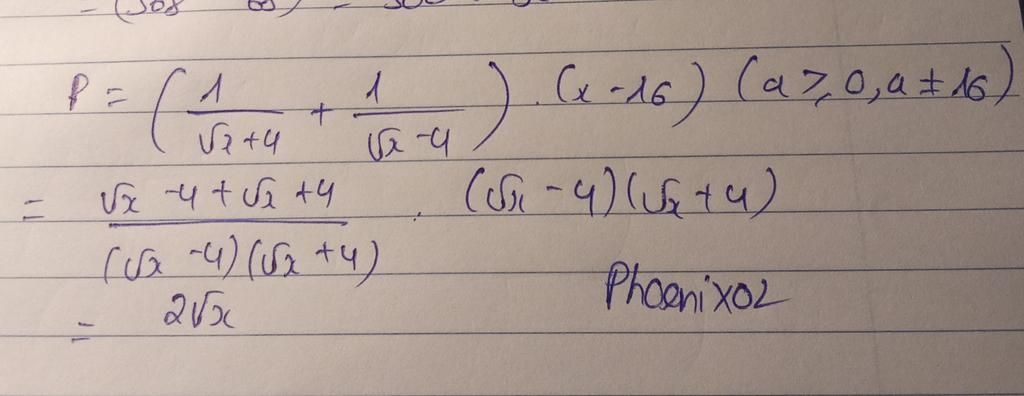 P = ( 1/(√x+4) + 1/(√x-4) ) . (x-16) (a ≥ 0, a ± 16)
= (√x -4 + √x +4)/((√x -4)(√x +4)) . (√x -4)(√x +4)
= 2√x
Phoenix02